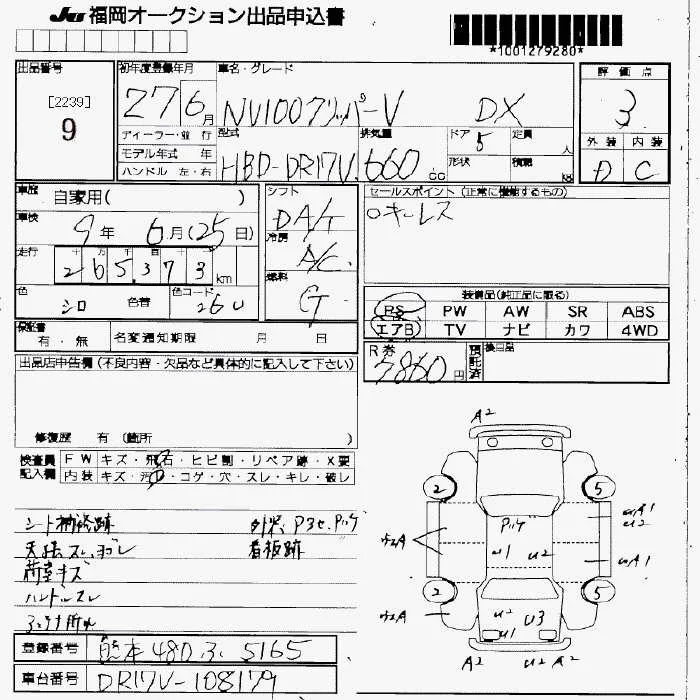 JU 福岡オークション出品申込書
*1001279280*
出品番号
[2239]
9
初年度登録年月
27 6 月
車名・グレード
NV100クリッパーV DX
評価点
3
ディーラー・並行
モデル年式 年
ハンドル 左・右
型式
HBD-DR17V
排気量
660 cc
ドア 5
定員 人
形状
積載 kg
外装 内装
D C
車歴
自家用( )
車検
9 年 6 月(25日)
走行
十 万 千 百 十 一
265,373 km
色
シロ
色替
色コード
26U
シフト
DA/T
冷房
A/C
燃料
G
セールスポイント (正常に機能するもの)
○キーレス
装備品(純正品に限る)
PS PW AW SR ABS
エアB TV ナビ カワ 4WD
保証書
有・無
名変通知期限 月 日
R券
7860円
預託済
後日品
出品店申告欄(不良内容・欠品など具体的に記入して下さい)
修復歴 有 (箇所 )
検査員記入欄
FW キズ・飛石・ヒビ割・リペア跡・X要
内装 キズ・汚・コゲ・穴・スレ・キレ・破レ
シート補修跡
外装、P3セ、Pッゲ
天張スレ、ヨゴレ
看板跡
荷室キズ
ハンドルスレ
A2
2 5
Pッゲ
uA1
u2
u1 u2
uA1
2 5
u2
u1
u3
A2 A2
登録番号
熊本 480 ス 5165
車台番号
DR17V-108179